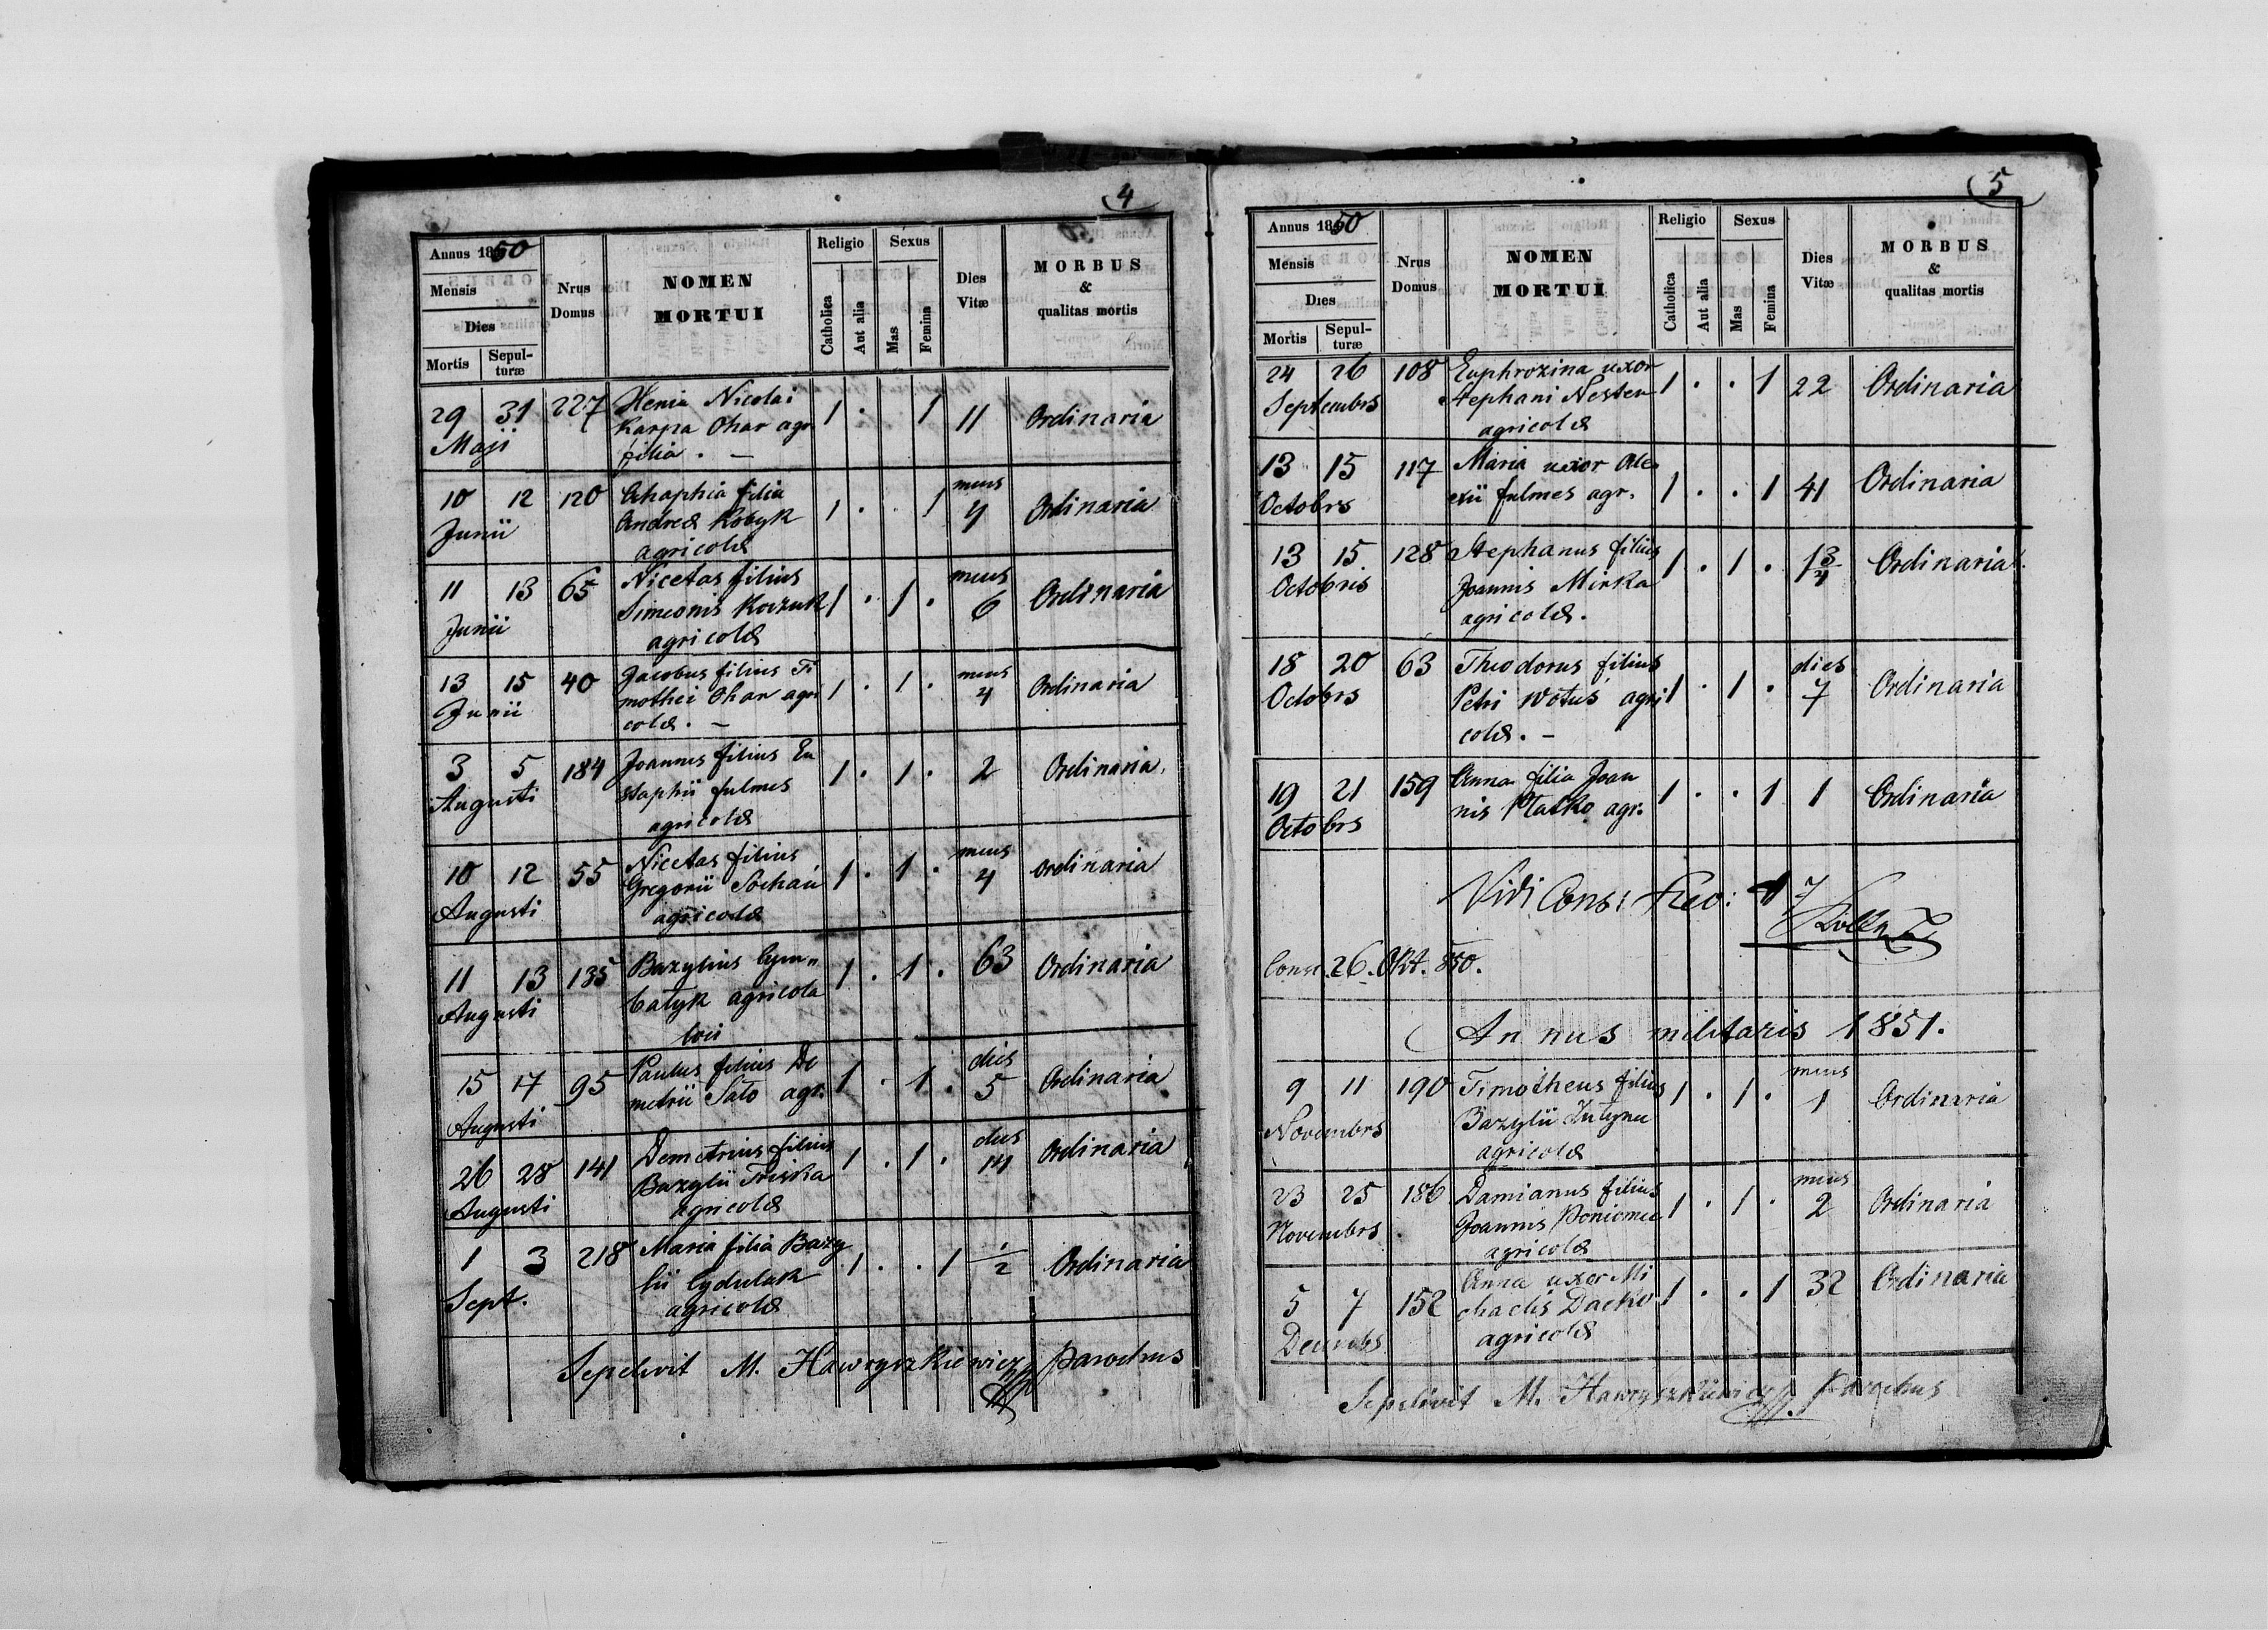 4
Annus 1850
Mensis
Dies
Mortis
Sepul-
turæ
Nrus
Domus
NOMEN
MORTUI
Religio
Catholica
Aut alia
Sexus
Mas
Femina
Dies
Vitæ
MORBUS
&
qualitas mortis
29 31 227 Xenia Nicolai 1 . 1 11 Ordinaria
Maji Karpa Ohar agr
filia . –
10 12 120 Ahaphia filia 1 . . 1 mens 4 Ordinaria
Junii Andreæ Kobyk
agricolæ
11 13 65 Nicetas filius 1 . 1 . mens 6 Ordinaria
Junii Simeonis Korzuk
agricolæ
13 15 40 Jacobus filius Ti 1 . 1 . mens 4 Ordinaria
Junii mothei Ohar agri
colæ. –
3 5 184 Joannes filius Eu 1 . 1 . 2 Ordinaria
Augusti staphii fulmes
agricolæ
10 12 55 Nicetas filius 1 . 1 . mens 4 Ordinaria
Augusti Gregorii Sochań
agricolæ
11 13 135 Bazylius Cym„ 1 . 1 . 63 Ordinaria
Augusti bałyk agricola
loci
15 17 95 Paulus filius De 1 . 1 . dies 5 Ordinaria
Augusti metrii Sało agr.
26 28 141 Demetrius filius 1 . 1 . dies 14 Ordinaria
Augusti Bazylii Triska
agricolæ
1 3 218 Maria filia Bazy 1 . . 1 1/2 Ordinaria
Sept. lii Cydulak
agricolæ
Sepelivit M. Hawryszkiewicz parochus
5
Annus 1850
Mensis
Dies
Mortis
Sepul-
turæ
Nrus
Domus
NOMEN
MORTUI
Religio
Catholica
Aut alia
Sexus
Mas
Femina
Dies
Vitæ
MORBUS
&
qualitas mortis
24 26 108 Euphrozina uxor 1 . . 1 22 Ordinaria
Septembrs Stephani Nesteu
agricolæ
13 15 117 Maria uxor Ale 1 . . 1 41 Ordinaria
Octobrs xii fulmes agr.
13 15 128 Stephanus filius 1 . 1 . 1 3/4 Ordinaria
Octobris Joannis Mirka
agricolæ.
18 20 63 Theodorus filius 1 . 1 . dies 7 Ordinaria
Octobrs Petri Wołus agri
colæ. –
19 21 159 Anna filia Joan 1 . . 1 1 Ordinaria
Octobrs nis Płatko agr.
Vidi Cons:
26. Okt. 850.
Annus militaris 1851.
9 11 190 Timotheus filius 1 . 1 . mens 1 Ordinaria
Novembrs Bazylii
agricolæ
23 25 186 Damianus filius 1 . 1 . mens 2 Ordinaria
Novembrs Joannis Poniomec
agricolæ
5 7 152 Anna uxor Mi 1 . . 1 32 Ordinaria
Decembs chaelis Dacko
agricolæ
Sepelivit M. Hawryszkiewicz parochus